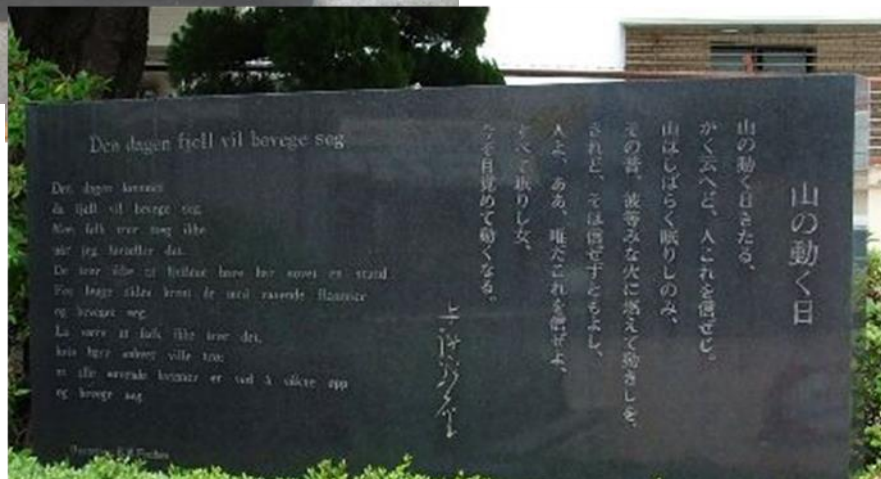 Den dagen fjell vil bevege seg
Den dagen kommer
da fjell vil bevege seg.
Men folk tror meg ikke
når jeg forteller det.
De tror ikke at fjellene bare har sovet en stund.
For lenge siden brent de med rasende flammer
og beveget seg.
La være at folk ikke tror det,
hvis bare enhver ville tro:
at alle sovende kvinner er ved å våkne opp
og bevege seg
山の動く日
山の動く日きたる、
かく云へど、人これを信ぜじ。
山はしばらく眠りしのみ、
その昔、彼等みな火に燃えて動きしを。
されど、そは信ぜずともよし、
人よ、ああ、唯だこれを信ぜよ、
すべて眠りし女、
今ぞ目覚めて動くなる。